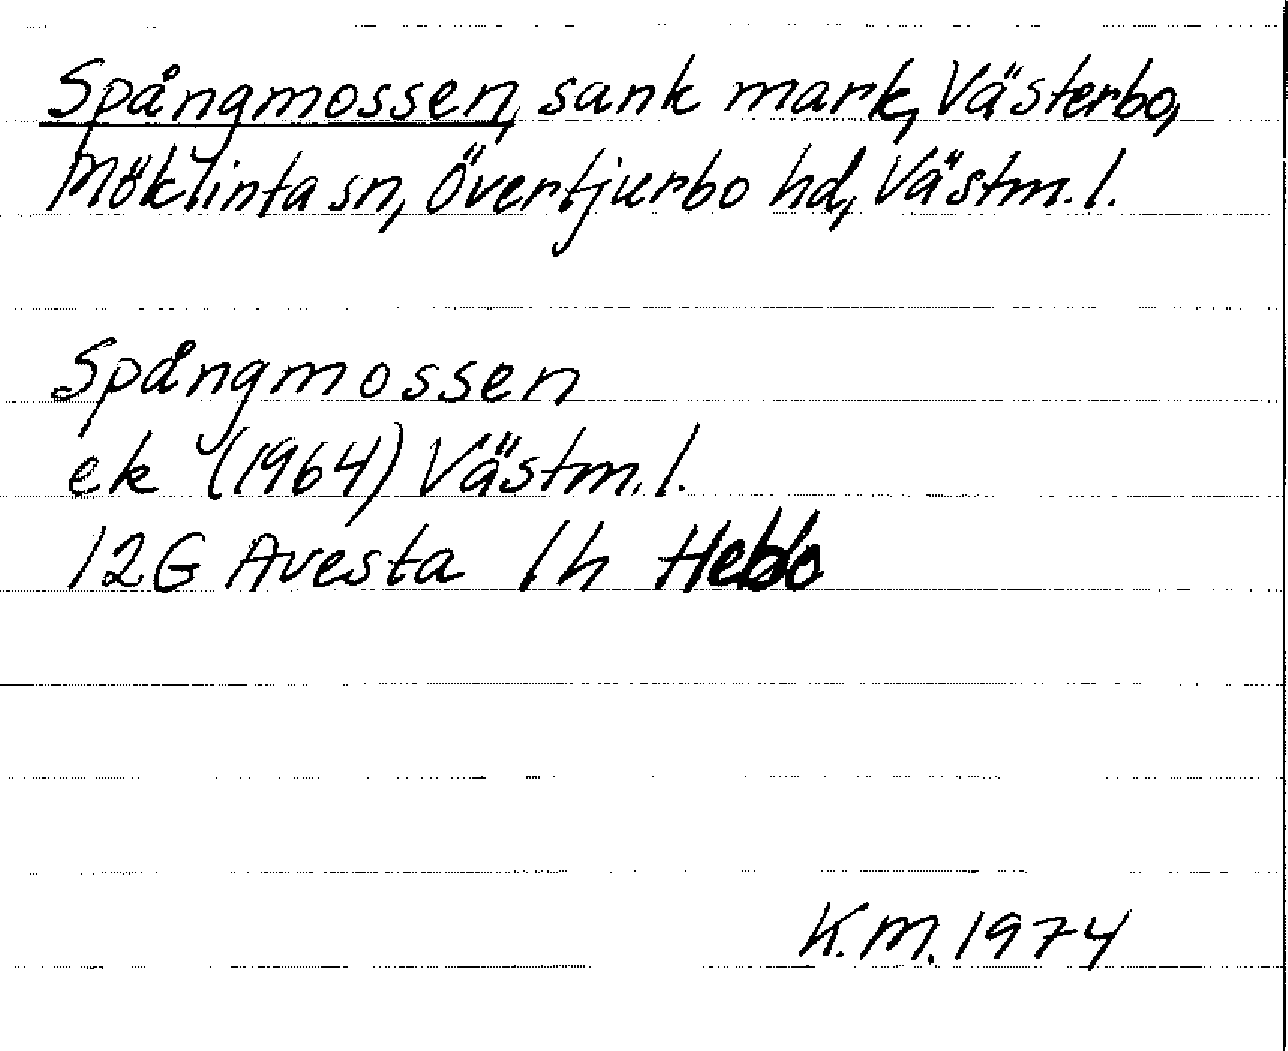 Spångmossen, sank mark, Västerbo,
Möklinta sn, Övertjurbo hd, Västm. l.
Spångmossen
ek (1964) Västm. l.
12G Avesta 1h Hebo
K.M. 1974